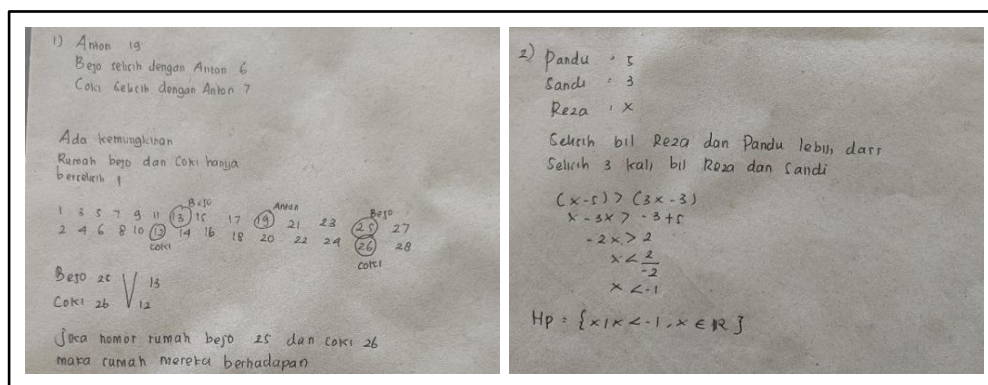 1) Anton 19
Bejo selisih dengan Anton 6
Coki Selisih dengan Anton 7
Ada kemungkinan
Rumah bejo dan Coki hanya
berselisih 1
Bejo Anton Bejo
1 3 5 7 9 11 13 15 17 19 21 23 25 27
2 4 6 8 10 12 14 16 18 20 22 24 26 28
coki coki
Bejo 25 V 13
Coki 26 12
Jika nomor rumah bejo 25 dan coki 26
maka rumah mereka berhadapan
2) Pandu : 5
Sandi : 3
Reza : x
Selisih bil Reza dan Pandu lebih dari
Selisih 3 kali bil Reza dan Sandi
(x-5) > (3x-3)
x - 3x > -3+5
-2x > 2
x < 2/-2
x < -1
Hp = {x|x < -1, x ∈ R}